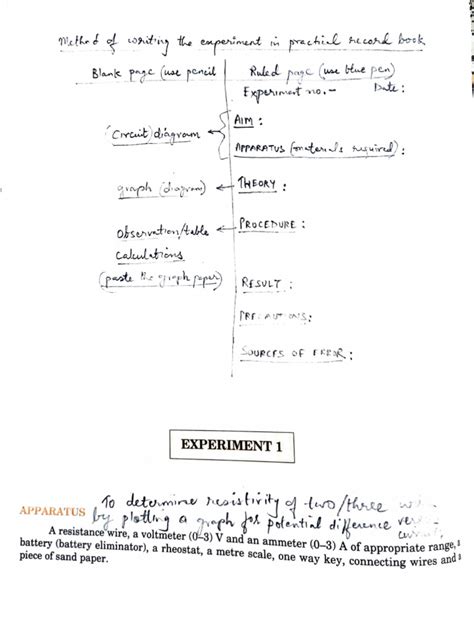 Method of writing the experiment in practical record book
Blank page (use pencil
Ruled page (use blue pen)
Experiment no. – Date :
AIM :
(Circuit) diagram
APPARATUS (materials required) :
graph (diagram)
THEORY :
Observation/table
PROCEDURE :
Calculations
(paste the graph paper)
RESULT :
PRECAUTIONS :
SOURCES OF ERROR :
EXPERIMENT 1
To determine resistivity of two/three
APPARATUS
by plotting a graph for potential difference
A resistance wire, a voltmeter (0–3) V and an ammeter (0–3) A of appropriate range,
battery (battery eliminator), a rheostat, a metre scale, one way key, connecting wires and
piece of sand paper.